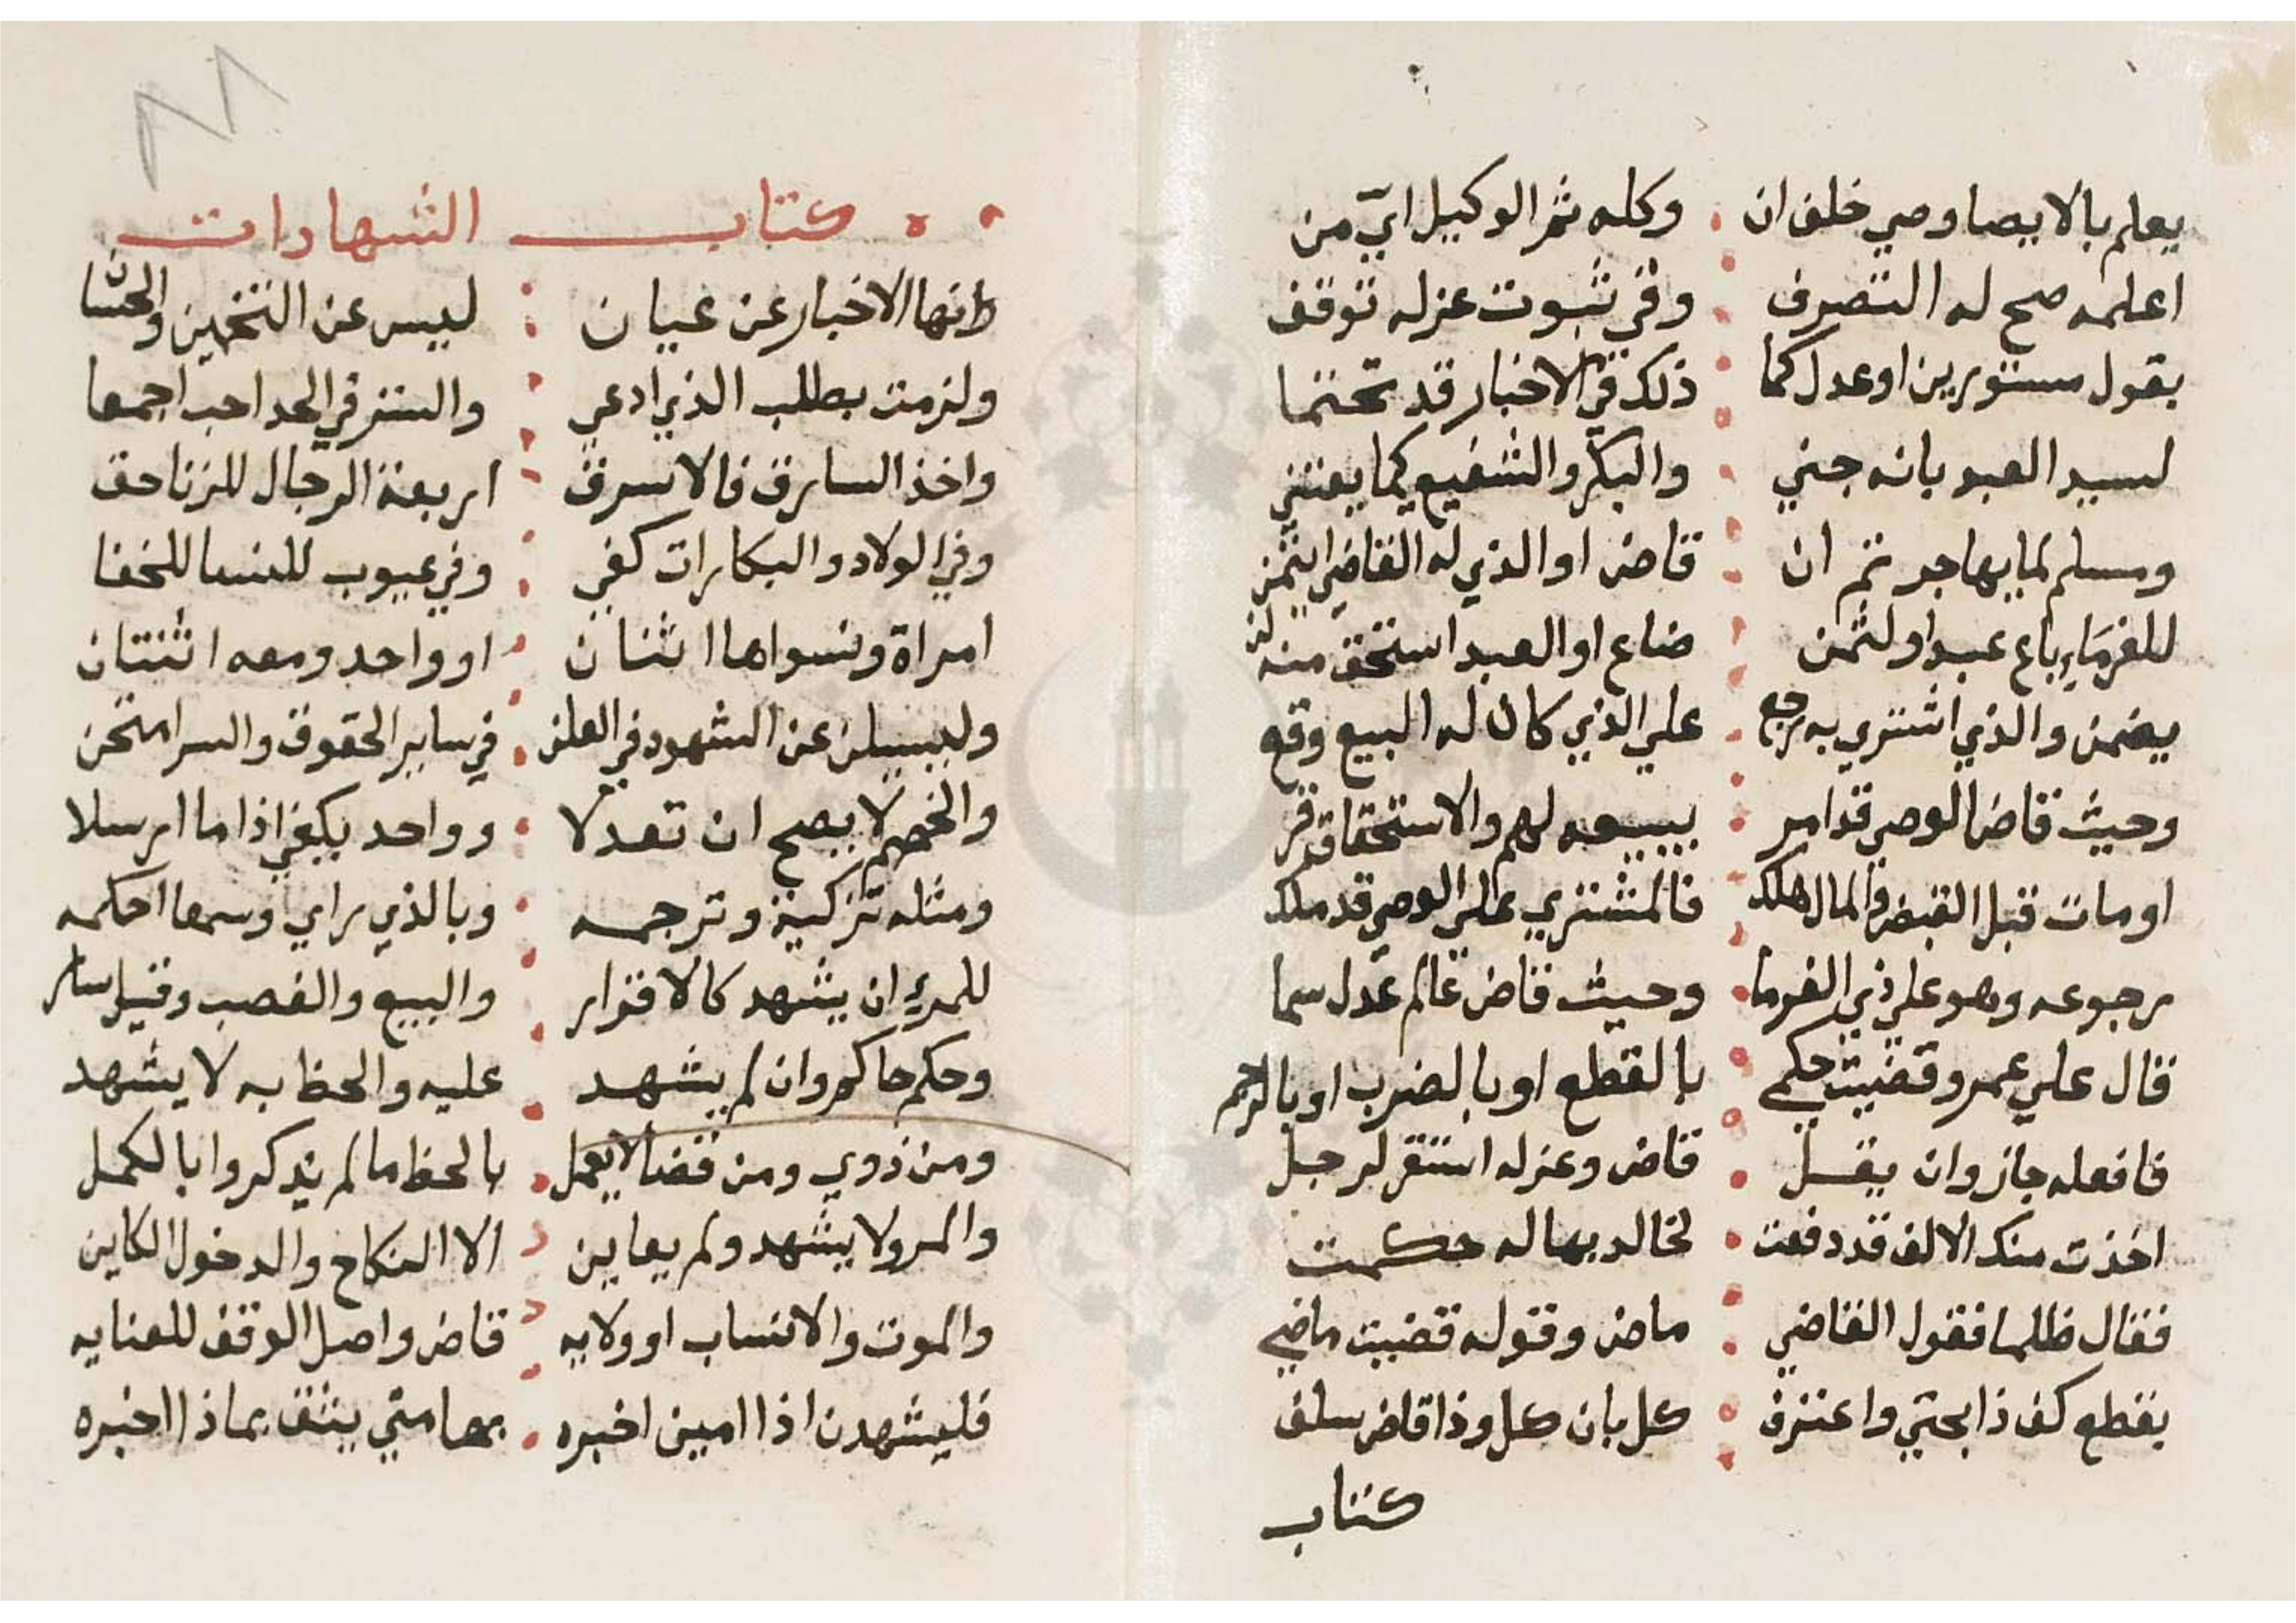 يعلم بالايصا وصي خلف ان وكله ثم الوكيل اي من
اعلمه صح له التصرف وفي ثبوت عزله توقف
بقول مستورين او عدل كما ذلك في الاخبار قد تحتما
لسيد العبد بانه جني والبكر والشفيع كما يعتني
ومسلم لما يهاجر ثم ان قاض او الذي له القاضي ائتمن
للغرماء باع عبدا ولثمن ضاع او العبد استحق منه لن
يضمن والذي اشتري به رجع علي الذي كان له البيع وقع
وحيث قاض الوصي قد امر ببيعه لهم والاستحقاق قر
او مات قبل القبض والمال هلك فالمشتري علي الوصي قد ملك
رجوعه وهو علي ذي الغرما وحيث قاض عالم عدل سما
قال علي عمرو قضيت حكمي بالقطع او بالضرب او بالرجم
فافعله جاز وان يقل قاض وعزله استقر لرجل
اخذت منك الالف قد دفعت لخالد بها له حكمت
فقال ظلما فقول القاضي ماض وقوله قضيت ماضي
بقطع كف ذا بحق واعترف كل بان كل وذا قاض سلف
كتاب
كتاب الشهادات
وانها الاخبار عن عيان ليس عن التخمين والحسبان
ولزمت بطلب الذي ادعي والستر في الحد احب اجمعا
واخذ السارق فالا سرق اربعة الرجال للزنا حق
وفي الولاد والبكارات كفي وفي عيوب للنسا للخفا
امراة وسواها اثنان او واحد ومعه اثنتان
وليسيلن عن الشهود في العلن في ساير الحقوق والسر امتحن
والخصم لا يصح ان تعدلا وواحد يكفي اذا ما ارسلا
ومثله تزكية وترجمه وبالذي راي وسمعا احكمه
للمرء ان يشهد كالاقرار والبيع والغصب وقتل سار
وحكم حاكم وان لم يشهد عليه والحظ به لا يشهد
ومن ذوي ومن قضا لا يعمل بالحظ ما لم يذكروا بالكمل
والمرو لا يشهد ولم يعاين الا النكاح والدخول الكاين
والموت والانساب او ولايه قاض واصل الوقف للعنايه
فليشهدن اذا امين اخبره بها متي يثق بماذا اخبره